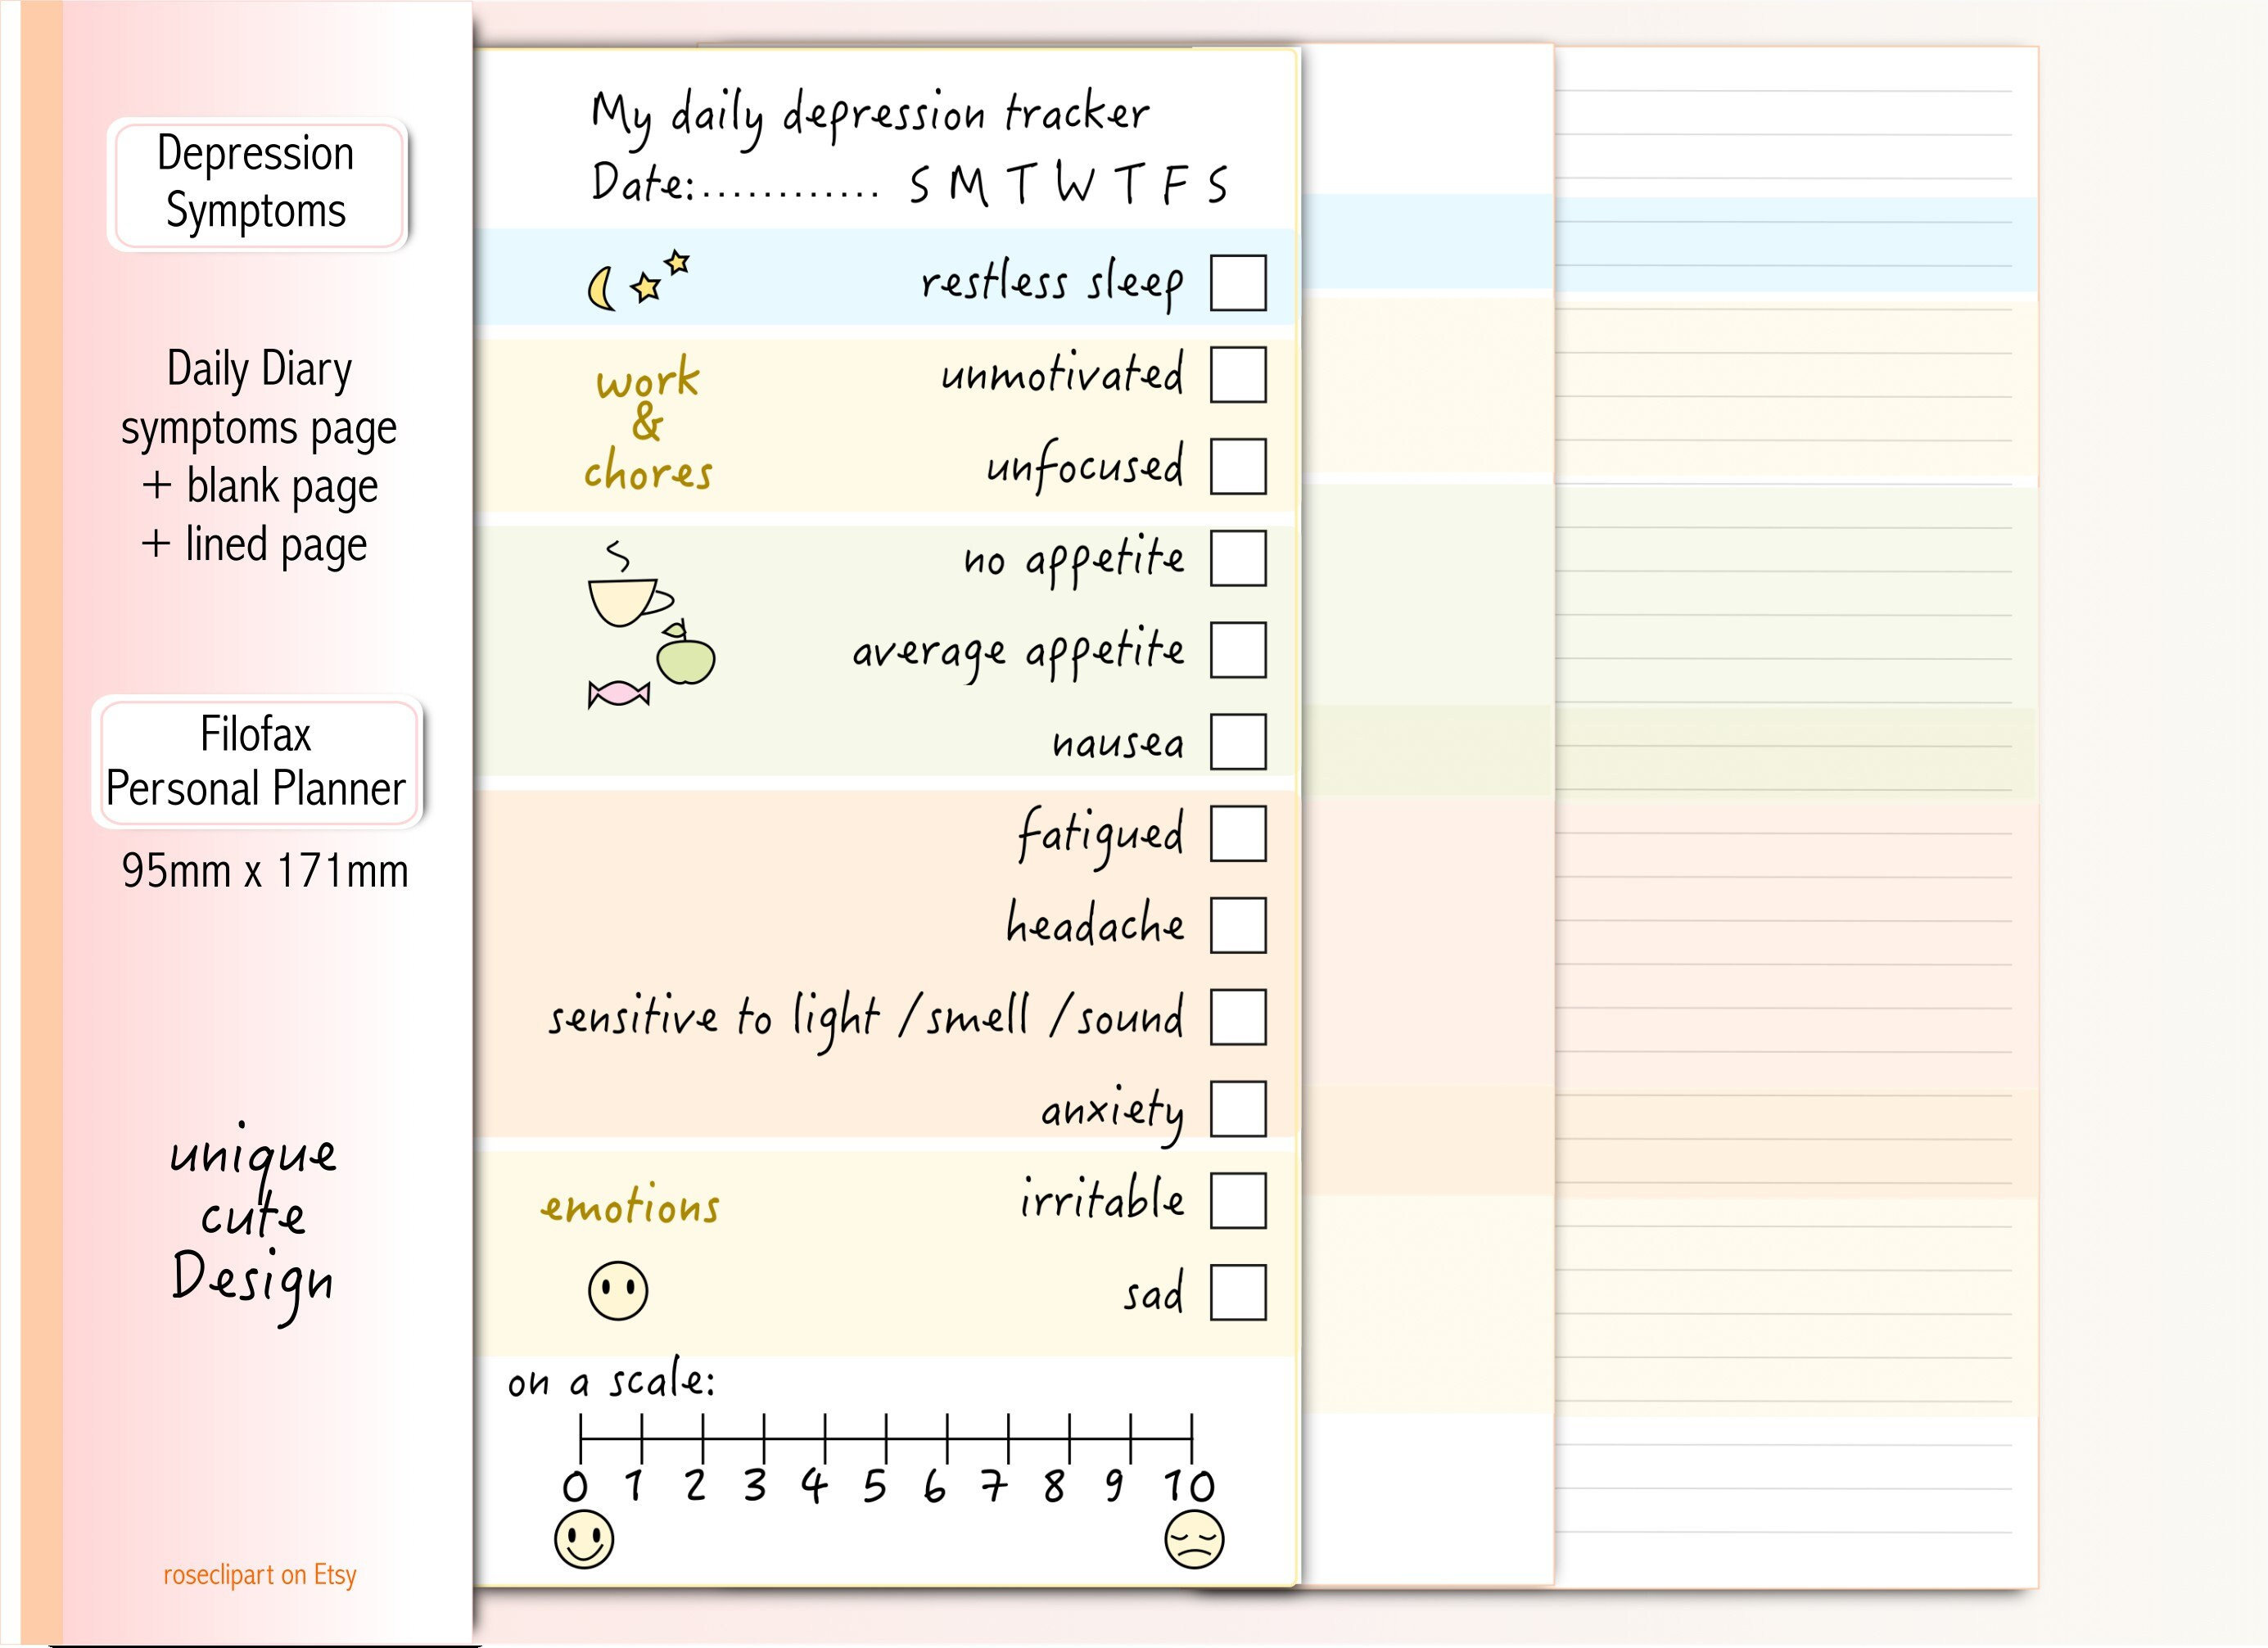 Depression
Symptoms
Daily Diary
symptoms page
+ blank page
+ lined page
Filofax
Personal Planner
95mm x 171mm
unique
cute
Design
roseclipart on Etsy
My daily depression tracker
Date:............ S M T W T F S
restless sleep
work
&
chores
unmotivated
unfocused
no appetite
average appetite
nausea
fatigued
headache
sensitive to light /smell /sound
anxiety
emotions
irritable
sad
on a scale:
0 1 2 3 4 5 6 7 8 9 10